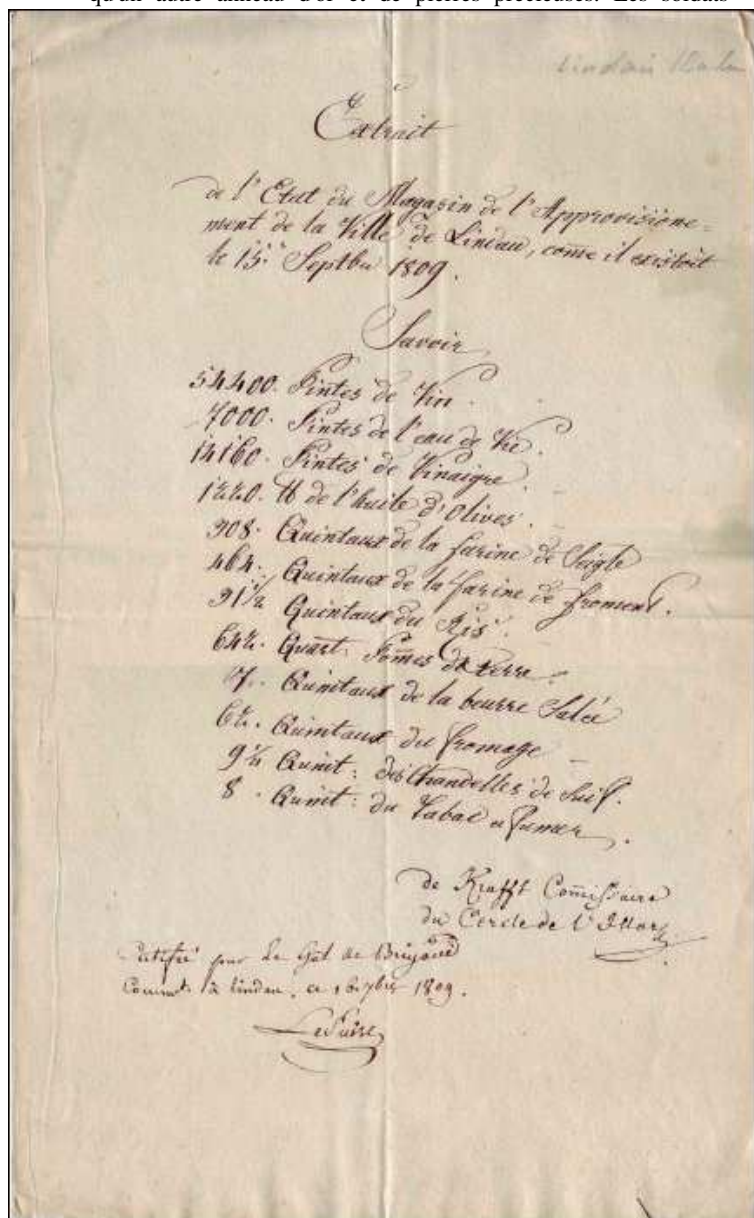 qu'un autre anneau d'or et de pierres précieuses. Les soldats
Extrait
de l'Etat du Magasin de l'Approvisione=
ment de la Ville de Lindau, come il existoit
le 15. Septbr 1809.
Savoir
54400. Pintes de Vin.
7000. Pintes de l'eau de Vie.
14160. Pintes de Vinaigre.
1220. ℔ de l'huile d'Olives.
908. Quintaux de la farine de Seigle
464. Quintaux de la farine de froment.
91½ Quintaux du Ris.
642. Quart: Pomes de terre.
7. Quintaux de la beurre Salée
62. Quintaux du fromage
9½ Quint: des Chandelles de Suif.
8. Quint: du Tabac a fumer.
de Krafft Comissaire
du Cercle de l'Iller
Certifié par le Gal de Brigade
Commt. à Lindau, ce 16 7bre 1809.